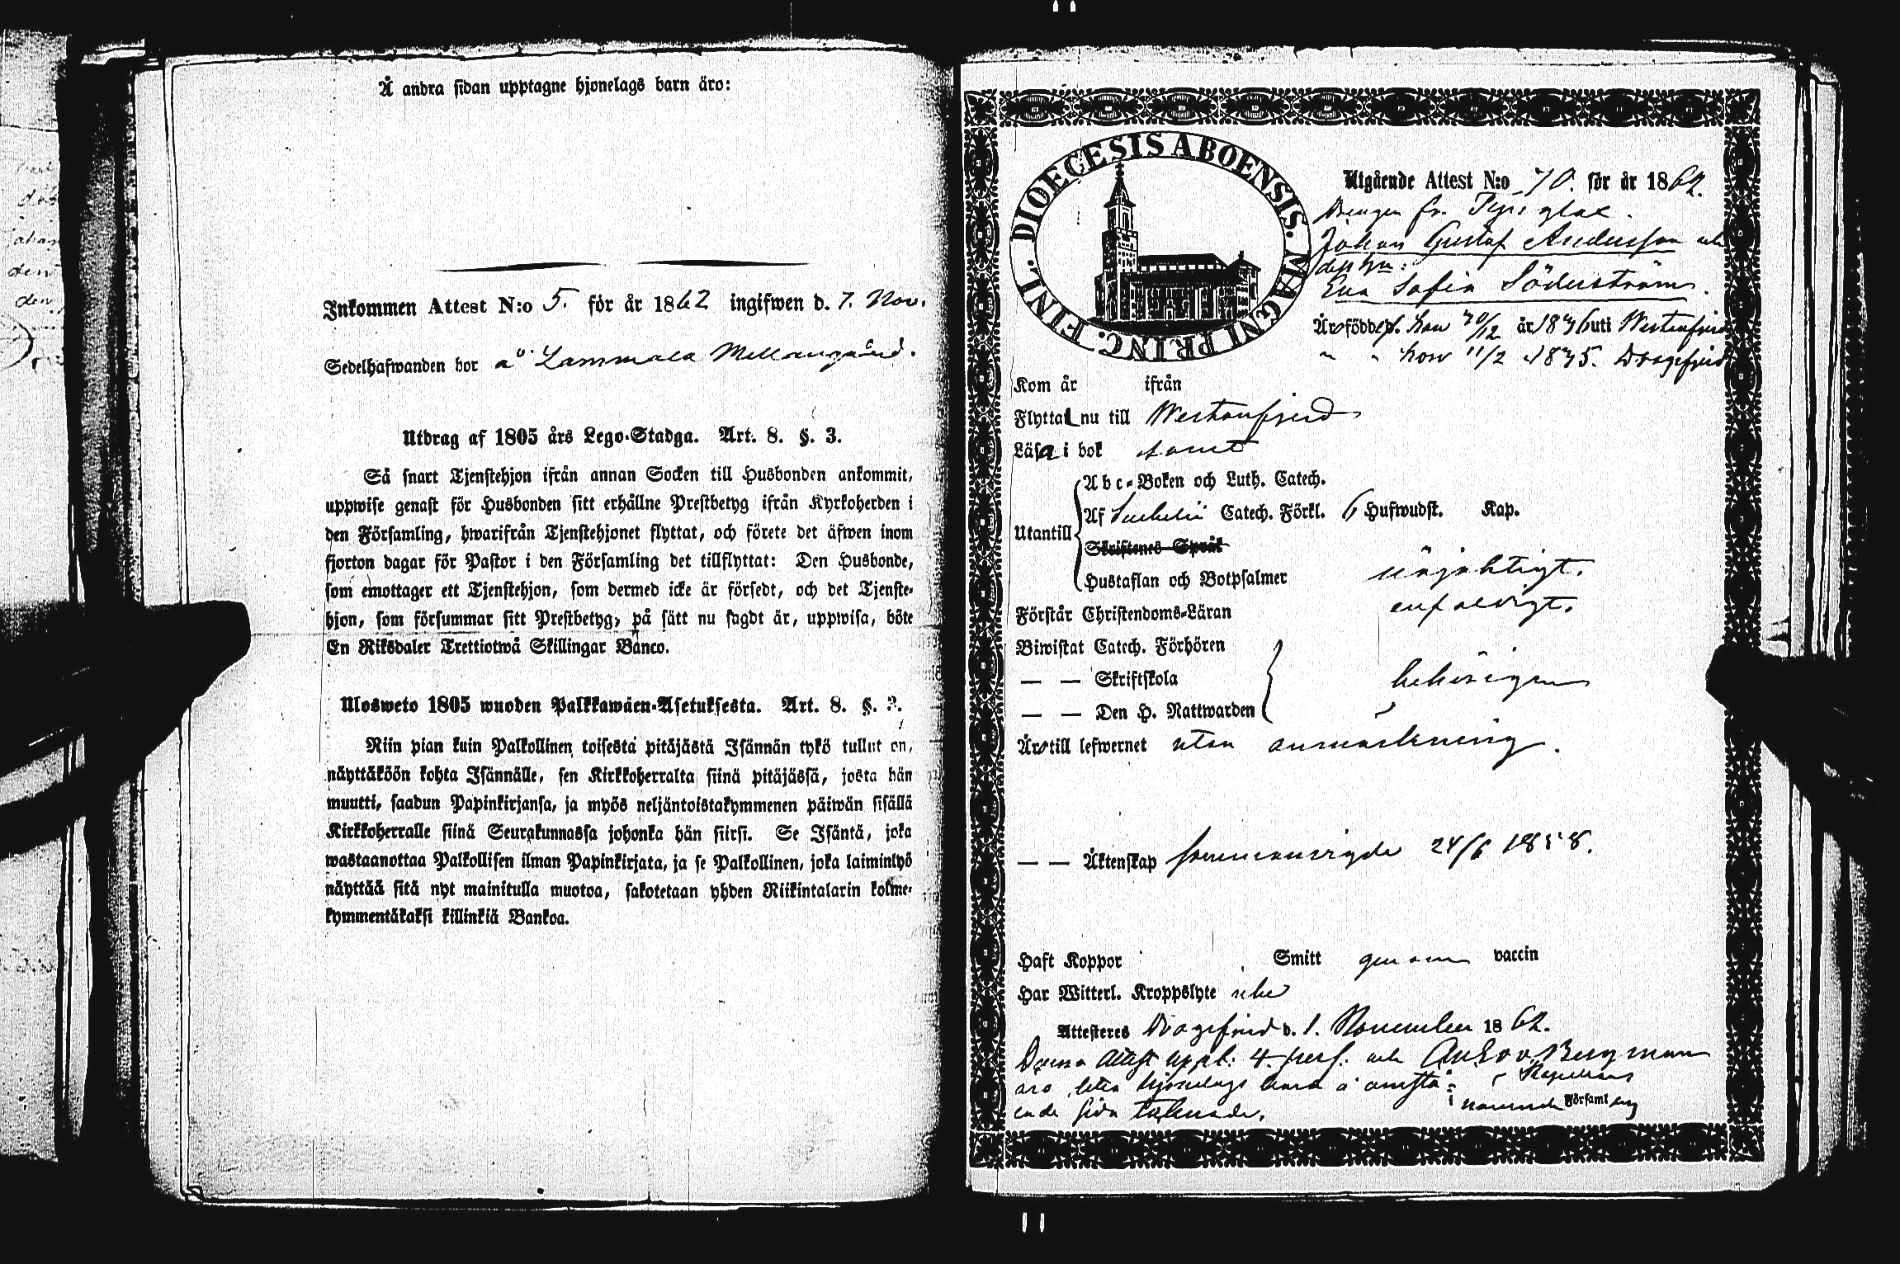 Å andra sidan upptagne hjonelags barn äro:
Inkommen Attest N:o 5. för år 1862 ingifwen d. 7. Nov.
Sedelhafwanden bor å Lammala Mellangård.
Utdrag af 1805 års Lego-Stadga. Art. 8. §. 3.
Så snart Tjenstehjon ifrån annan Socken till Husbonden ankommit,
uppwise genast för Husbonden sitt erhållne Prestbetyg ifrån Kyrkoherden i
den Församling, hwarifrån Tjenstehjonet flyttat, och förete det äfwen inom
fjorton dagar för Pastor i den Församling det tillflyttat: Den Husbonde,
som emottager ett Tjenstehjon, som dermed icke är försedt, och det Tjenste-
hjon, som försummar sitt Prestbetyg, på sätt nu sagdt är, uppwisa, böte
En Riksdaler Trettiotwå Skillingar Banco.
Ulosweto 1805 wuoden Palkkawäen-Asetuksesta. Art. 8. §. 3.
Niin pian kuin Palkollinen toisesta pitäjästä Isännän tykö tullut on,
näyttäköön kohta Isännälle, sen Kirkkoherralta siinä pitäjässä, josta hän
muutti, saadun Papinkirjansa, ja myös neljäntoistakymmenen päiwän sisällä
Kirkkoherralle siinä Seurakunnassa johonka hän siirsi. Se Isäntä, joka
wastaanottaa Palkollisen ilman Papinkirjata, ja se Palkollinen, joka laiminlyö
näyttää sitä nyt mainitulla muotoa, sakotetaan yhden Riikintalarin kolme-
kymmentäkaksi killinkiä Bankoa.
DIOECESIS ABOENSIS. MAGNI PRINC. FINL.
Utgående Attest N:o 70. för år 1862.
Drengen fr.
Johan Gustaf Andersson och
dess hu:
Eva Sofia Söderström.
Äro födde, han 30/12 år 1836 uti Westanfjerd
" " hon 11/2 1835. Dragsfjerd
Kom år ifrån
Flyttat nu till Westanfjerd
Läsa i bok samt
Utantill
A b c-Boken och Luth. Catech.
Af Svebelii Catech. Förkl. 6 Hufwudst. Kap.
Skriftenes Språk
Hustaflan och Botpsalmer nöjaktigt.
Förstår Christendoms-Läran enfaldigt.
Biwistat Catech. Förhören
— — Skriftskola behörigen
— — Den H. Nattwarden
Äro till lefwernet utan anmärkning.
— — Äktenskap sammanvigde 24/6 1858.
Haft Koppor Smitt genom vaccin
Har Witterl. Kroppslyte icke
Attesteres Dragsfjerd d. 1. November 1862.
Denna attest uppt: 4. pers. och Bergman
äro detta hjonelags barn å omstå-
ende sida tecknade. i varande Församling